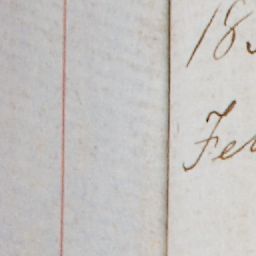 18
Fe